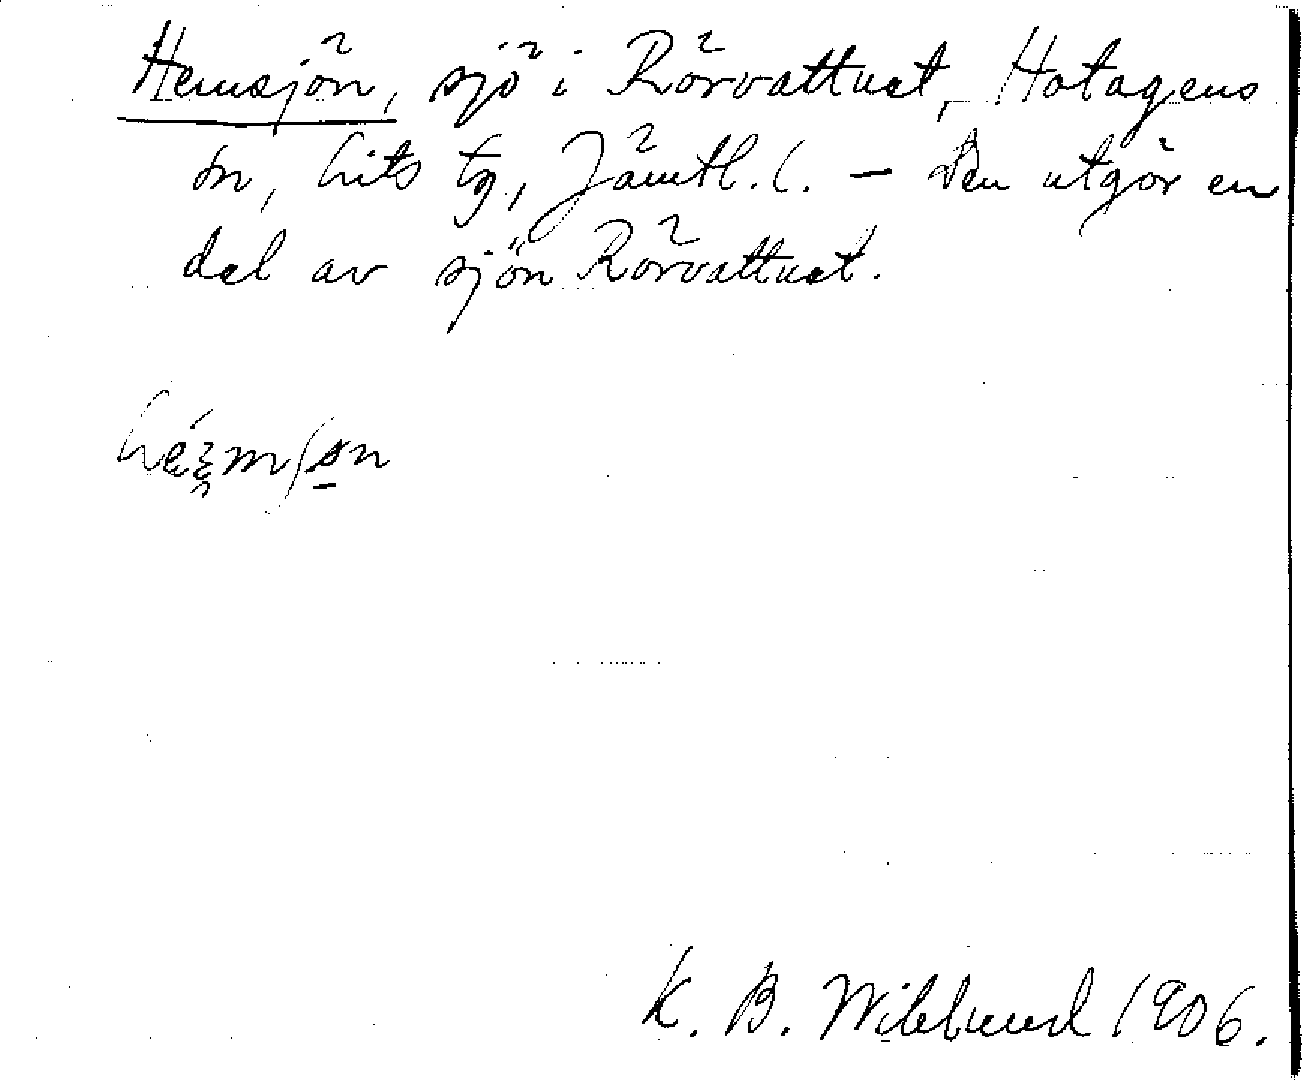 Hemsjön, sjö i Rörvattnet, Hotagens
sn, Lits tg, Jämtl. l. – Den utgör en
del av sjön Rörvattnet.
K. B. Wiklund 1906.